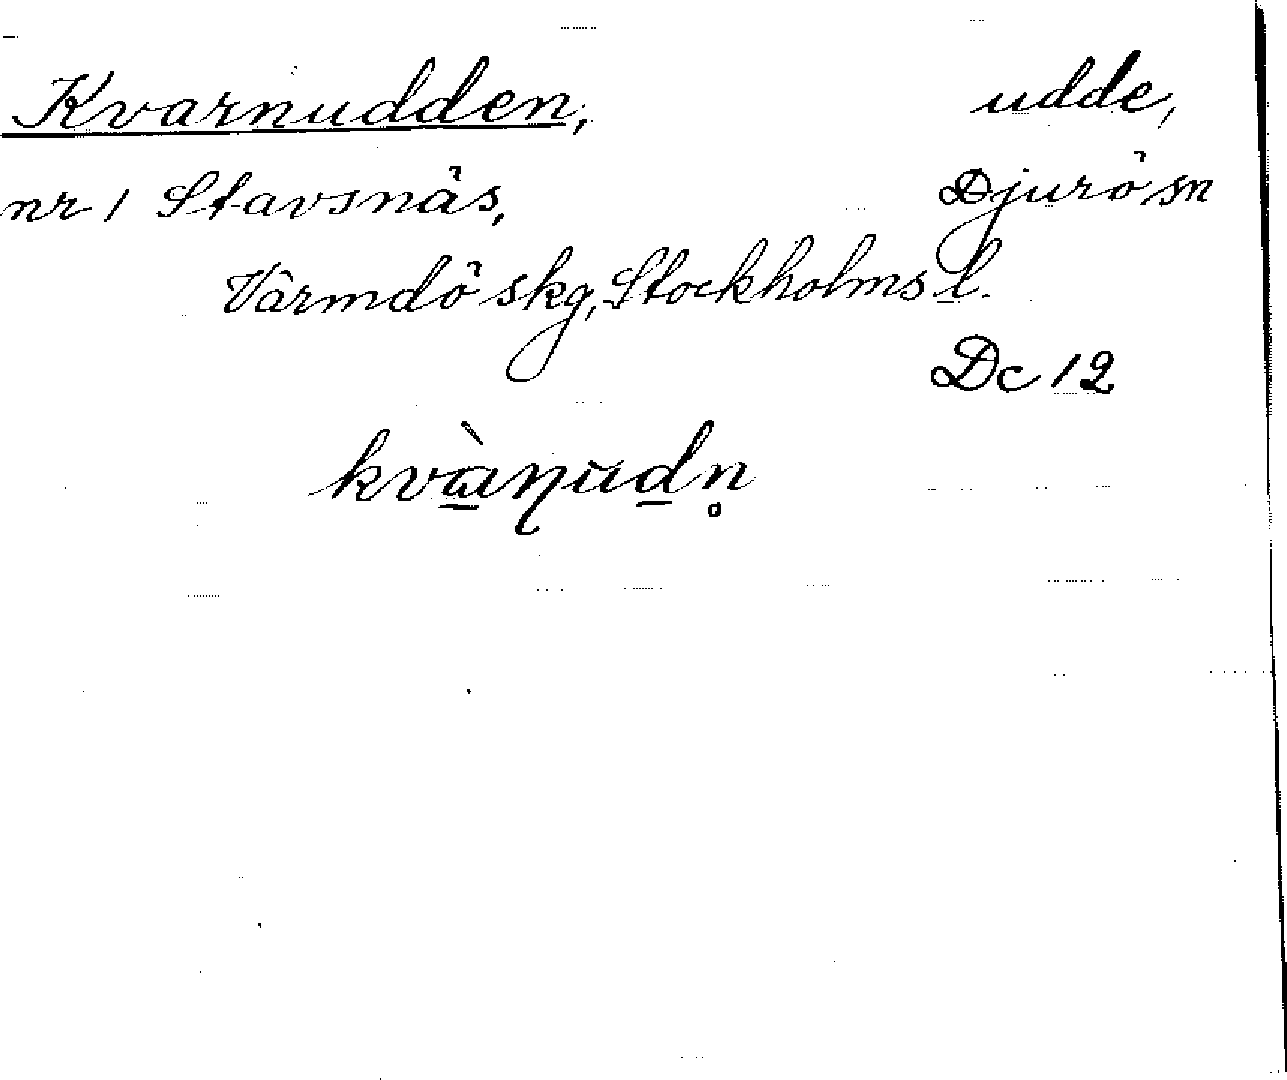 Kvarnudden, udde,
nr 1 Stavsnäs, Djurö sn
Värmdö skg, Stockholms l.
Dc 12
kvàɳudn̥